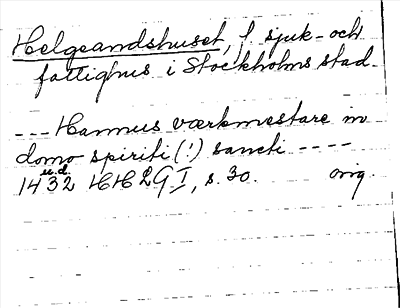 Helgeandshuset, f. sjuk- och
fattighus i Stockholms stad.
--- Hannus værkmestare in
domo spiriti (!) sancti ----
u.d.
1432 HH2GI, s. 30. orig.